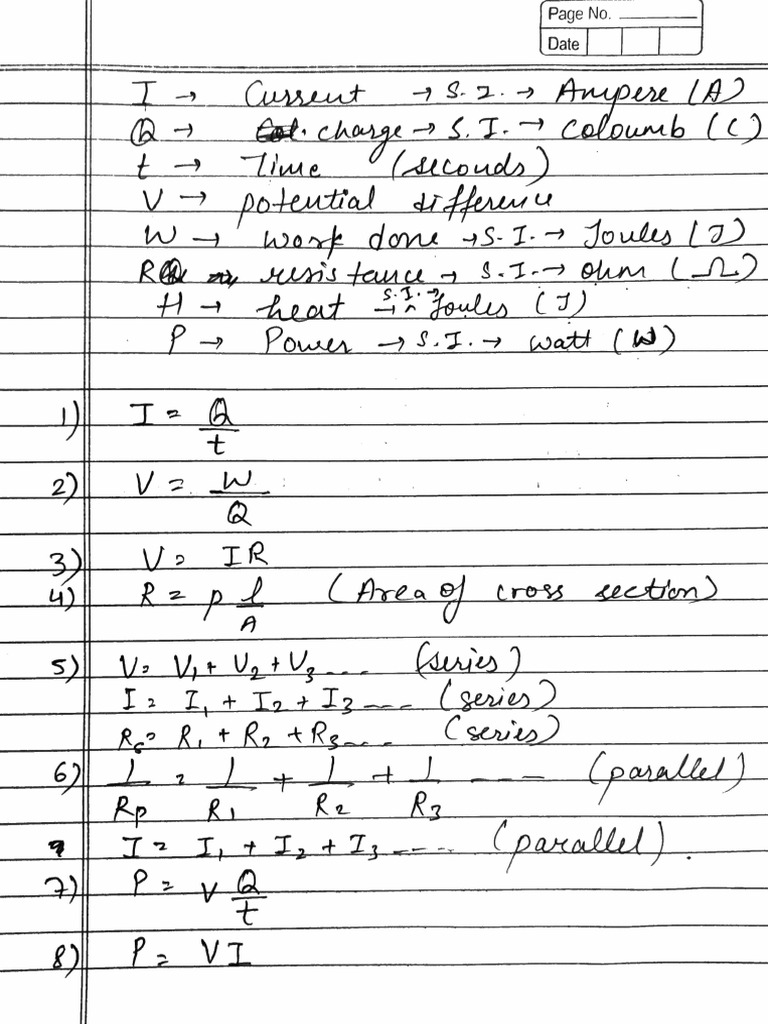 Page No.
Date
I → Current → S.I. → Ampere (A)
Q → charge → S.I. → Coloumb (C)
t → Time (seconds)
V → potential difference
W → work done → S.I. → Joules (J)
R → resistance → S.I. → ohm (Ω)
H → heat → S.I. → Joules (J)
P → Power → S.I. → watt (W)
1) I = Q/t
2) V = W/Q
3) V = IR
4) R = ρ l/A (Area of cross section)
5) V = V₁ + V₂ + V₃ ---- (series)
I = I₁ + I₂ + I₃ ---- (series)
Rs = R₁ + R₂ + R₃ ---- (series)
6) 1/Rp = 1/R₁ + 1/R₂ + 1/R₃ ---- (parallel)
I = I₁ + I₂ + I₃ ---- (parallel).
7) P = V Q/t
8) P = VI